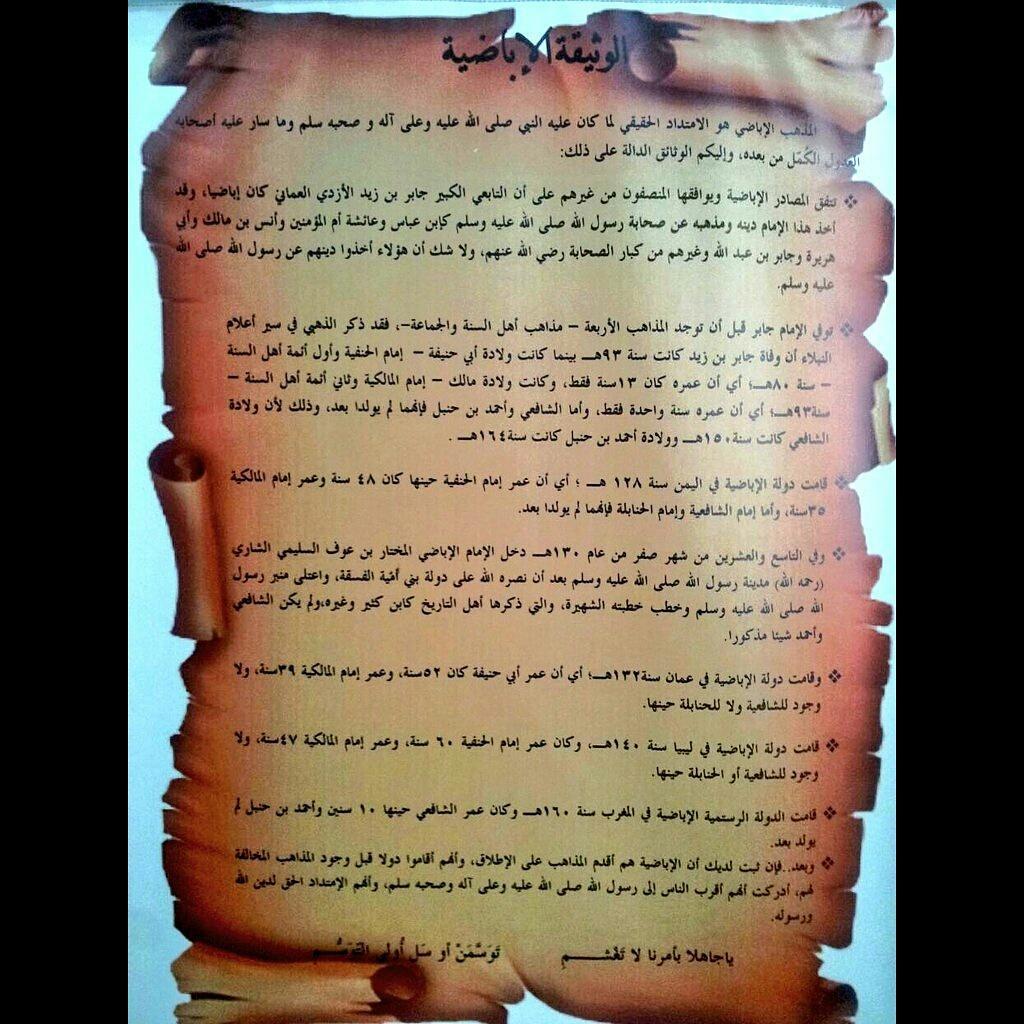 الوثيقة الإباضية
المذهب الإباضي هو الامتداد الحقيقي لما كان عليه النبي صلى الله عليه وعلى آله و صحبه سلم وما سار عليه أصحابه
العدول الكُمَّل من بعده، وإليكم الوثائق الدالة على ذلك:
❖ تتفق المصادر الإباضية ويوافقها المنصفون من غيرهم على أن التابعي الكبير جابر بن زيد الأزدي العماني كان إباضيا، وقد
أخذ هذا الإمام دينه ومذهبه عن صحابة رسول الله صلى الله عليه وسلم كإبن عباس وعائشة أم المؤمنين وأنس بن مالك وأبي
هريرة وجابر بن عبد الله وغيرهم من كبار الصحابة رضي الله عنهم، ولا شك أن هؤلاء أخذوا دينهم عن رسول الله صلى الله
عليه وسلم.
❖ توفي الإمام جابر قبل أن توجد المذاهب الأربعة – مذاهب أهل السنة والجماعة–، فقد ذكر الذهبي في سير أعلام
النبلاء أن وفاة جابر بن زيد كانت سنة ٩٣هـ بينما كانت ولادة أبي حنيفة – إمام الحنفية وأول أئمة أهل السنة
– سنة ٨٠هـ؛ أي أن عمره كان ١٣سنة فقط، وكانت ولادة مالك – إمام المالكية وثاني أئمة أهل السنة –
سنة٩٣هـ؛ أي أن عمره سنة واحدة فقط، وأما الشافعي وأحمد بن حنبل فإنهما لم يولدا بعد، وذلك لأن ولادة
الشافعي كانت سنة١٥٠هـ وولادة أحمد بن حنبل كانت سنة١٦٤هـ .
❖ قامت دولة الإباضية في اليمن سنة ١٢٨ هـ ؛ أي أن عمر إمام الحنفية حينها كان ٤٨ سنة وعمر إمام المالكية
٣٥سنة، وأما إمام الشافعية وإمام الحنابلة فإنهما لم يولدا بعد.
❖ وفي التاسع والعشرين من شهر صفر من عام ١٣٠هـ دخل الإمام الإباضي المختار بن عوف السليمي الشاري
(رحمه الله) مدينة رسول الله صلى الله عليه وسلم بعد أن نصره الله على دولة بني أمية الفسقة، واعتلى منبر رسول
الله صلى الله عليه وسلم وخطب خطبته الشهيرة، والتي ذكرها أهل التاريخ كابن كثير وغيره،ولم يكن الشافعي
وأحمد شيئا مذكورا.
❖ وقامت دولة الإباضية في عمان سنة١٣٢هـ؛ أي أن عمر أبي حنيفة كان ٥٢سنة، وعمر إمام المالكية ٣٩سنة، ولا
وجود للشافعية ولا للحنابلة حينها.
❖ قامت دولة الإباضية في ليبيا سنة ١٤٠هـ، وكان عمر إمام الحنفية ٦٠ سنة، وعمر إمام المالكية ٤٧سنة، ولا
وجود للشافعية أو الحنابلة حينها.
❖ قامت الدولة الرستمية الإباضية في المغرب سنة ١٦٠هـ وكان عمر الشافعي حينها ١٠ سنين وأحمد بن حنبل لم
يولد بعد.
❖ وبعد..فإن ثبت لديك أن الإباضية هم أقدم المذاهب على الإطلاق، وأنهم أقاموا دولا قبل وجود المذاهب المخالفة
لهم، أدركت أنهم أقرب الناس إلى رسول الله صلى الله عليه وعلى آله وصحبه سلم، وأنهم الإمتداد الحق لدين الله
ورسوله.
ياجاهلا بأمرنا لا تَغْشمِ تَوَسَّمَنْ أو سَل أُولي التَوَسُّمِ